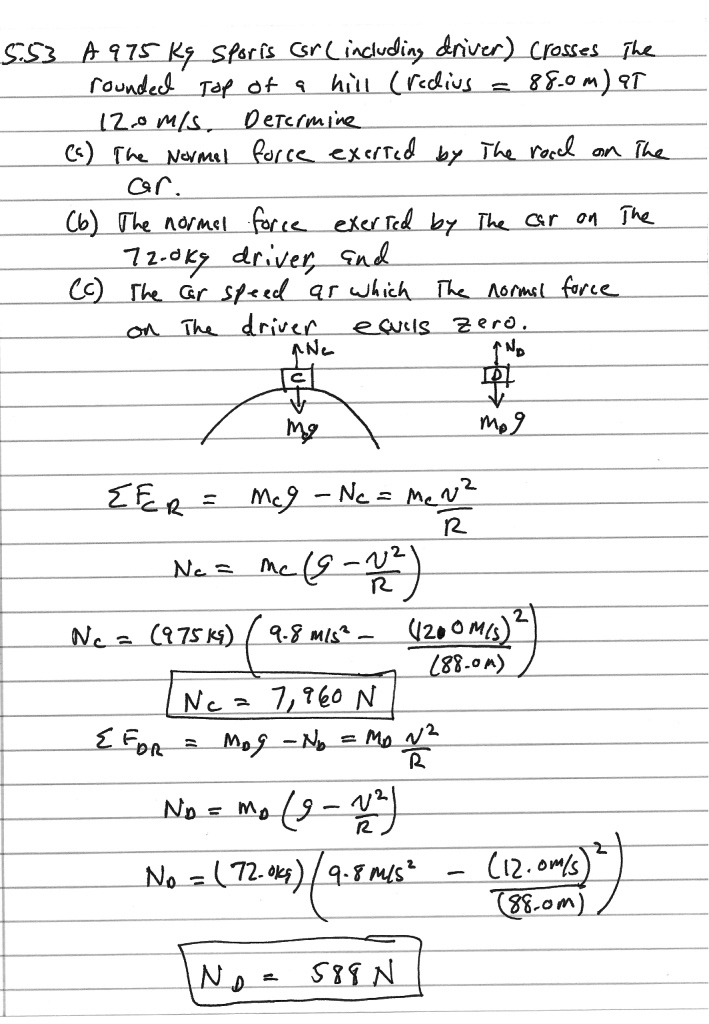 5.53 A 975 Kg sports car (including driver) crosses The
rounded Top of a hill (radius = 88.0 m) at
12.0 m/s. Determine
(a) The Normal force exerted by The road on The
car.
(b) The normal force exerted by The car on The
72.0kg driver, and
(c) The car speed at which The normal force
on The driver equals zero.
Nc ND
C D
Mg mDg
ΣFCR = mcg - Nc = mc v²/R
Nc = mc (g - v²/R)
Nc = (975 kg) (9.8 m/s² - (12.0 m/s)²/(88.0 m))
Nc = 7,960 N
ΣFDR = mDg - ND = mD v²/R
ND = mD (g - v²/R)
ND = (72.0kg) (9.8 m/s² - (12.0m/s)²/(88.0m))
ND = 588 N